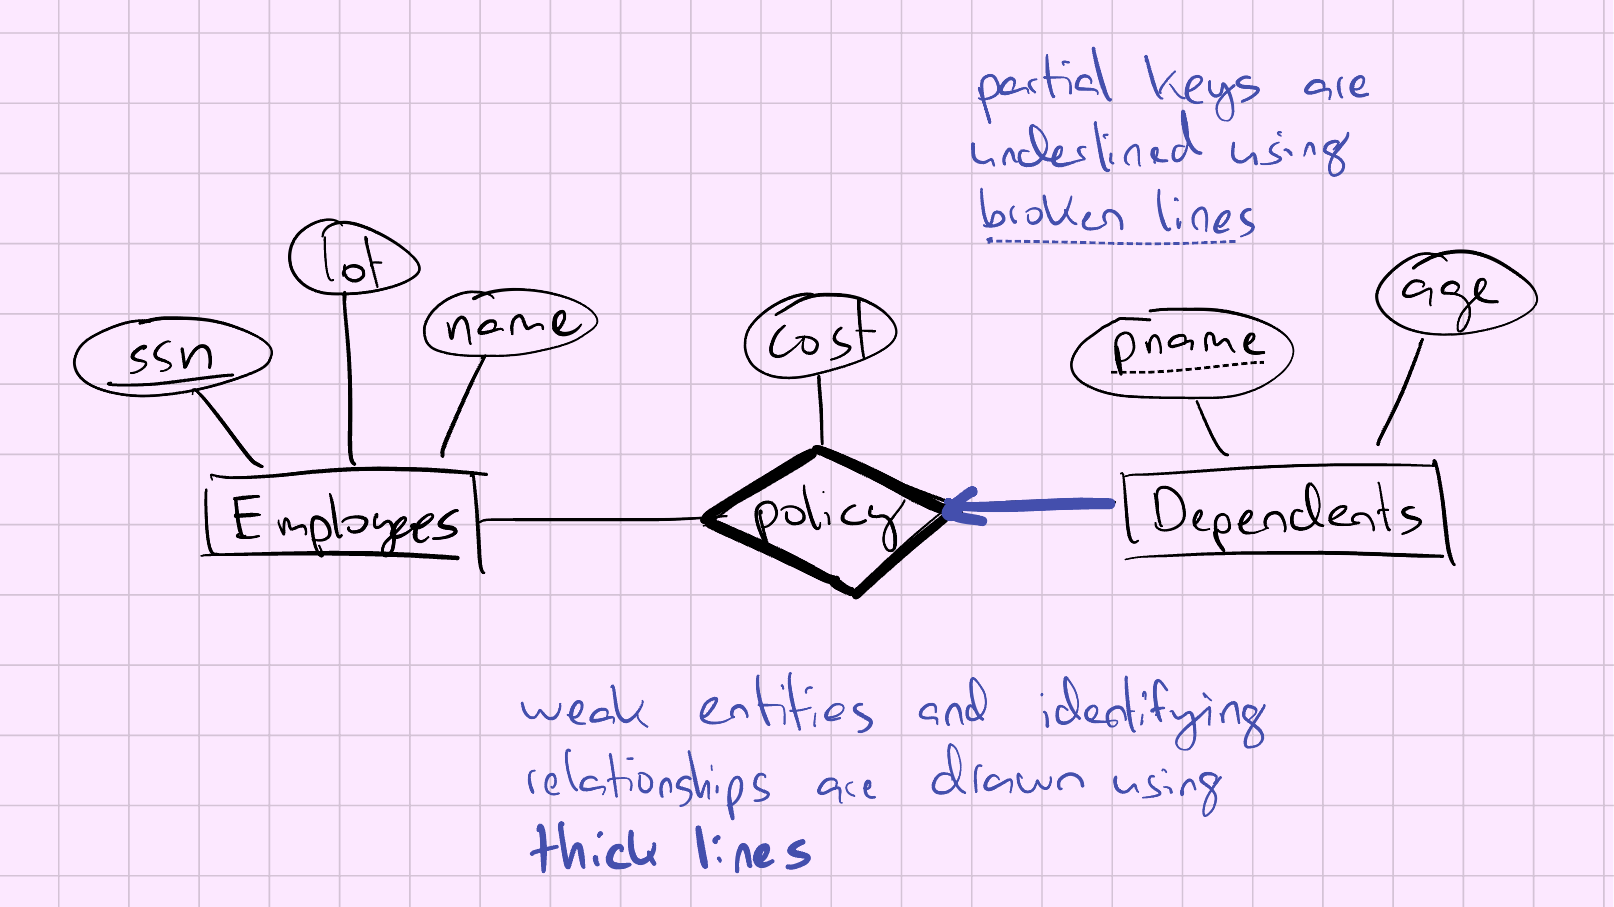 partial keys are
underlined using
broken lines
lot
age
name
ssn
cost
pname
Employees
policy
Dependents
weak entities and identifying
relationships are drawn using
thick lines